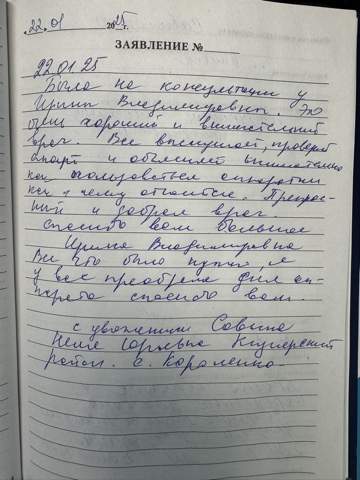 22.01 2025г.
ЗАЯВЛЕНИЕ №
22.01.25
Была на консультации у
Ирины Владимировны. Это
очень хороший и внимательный
врач. Все выслушает, проверит
и объяснит внимательно
как пользоваться аппаратом
как к чему относиться. Прекрас-
ный и добрый врач.
спасибо вам большое
Ирина Владимировна
Все что было нужно, я
у вас приобрела для ап-
парата спасибо вам.
с уважением Савина
район. с. Короленко